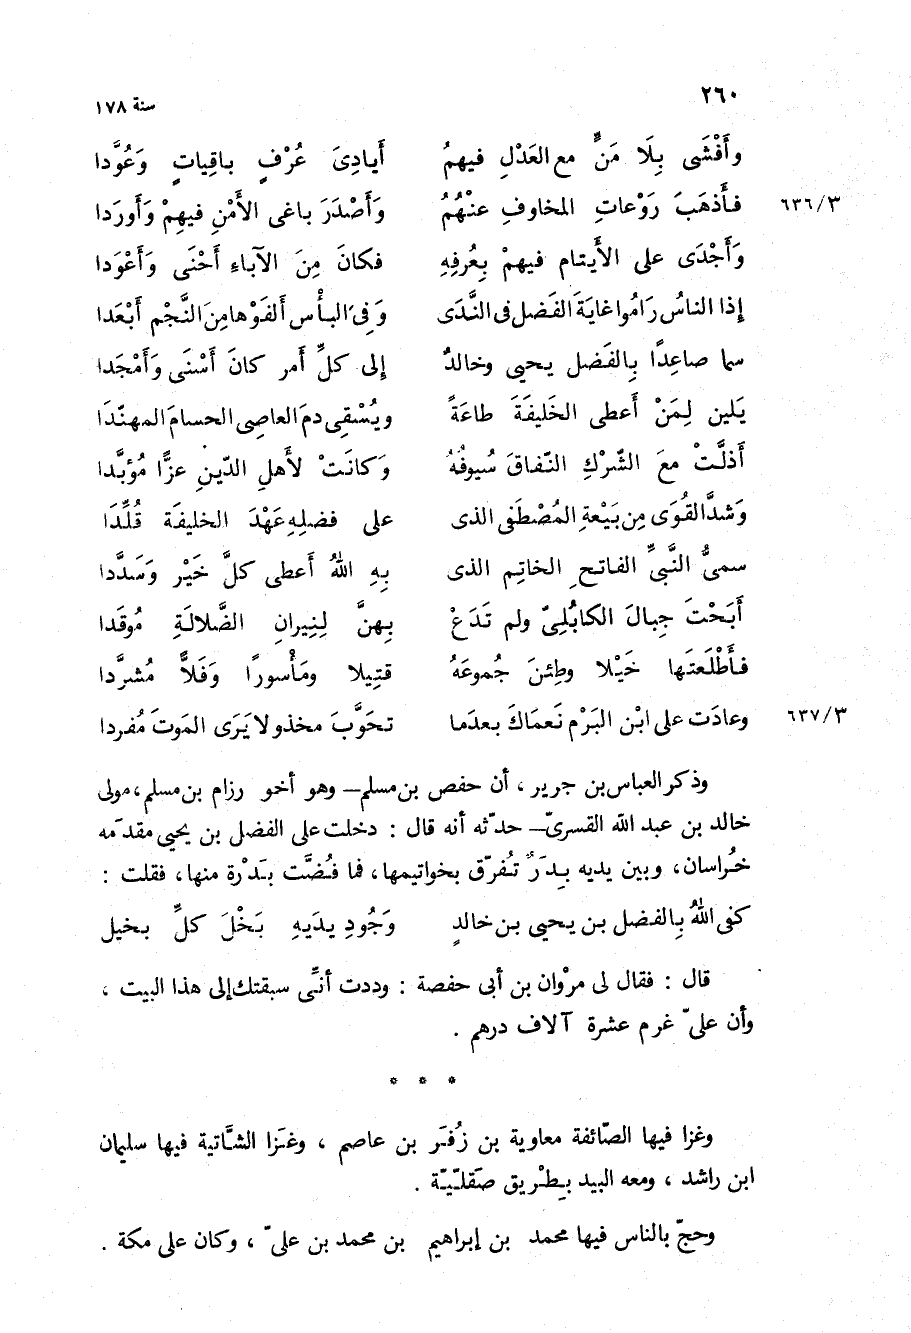 ٢٦٠
سنة ١٧٨
وأَفْشَى بِلَا مَنٍّ مع العَدْلِ فيهمُ أَيادِىَ عُرْفٍ باقِياتٍ وَعُوَّدا
٦٣٦/٣ فأَذهَبَ رَوْعاتِ المخاوفِ عنْهُمُ وَأَصْدَرَ باغى الأَمْنِ فيهِمْ وَأَورَدا
وَأَجْدَى على الأَيتام فيهمْ بِعُرفِهِ فكانَ مِنَ الآباءِ أَحْنَى وَأَعْوَدا
إذا الناسُ رَامُوا غايَةَ الفَضل فى النَّدَى وَفى البأْس أَلفَوْها مِنَ النَّجْم أَبْعَدا
سما صاعِدًا بِالفَضل يحيى وخالدٌ إلى كلِّ أَمر كانَ أَسْنَى وَأَمْجَدا
يَلين لِمَنْ أَعطى الخَليفَةَ طاعَةً ويُسْقِى دمَ العاصِى الحسامَ المهنَّدَا
أَذلَّتْ معَ الشّرْكِ النّفاقَ سُيوفُهُ وَكانَتْ لأَهلِ الدّينِ عزًّا مُؤبَّدا
وَشدَّ القُوَى مِن بَيْعةِ المُصْطَفى الذى على فضلِهِ عَهْدَ الخليفَة قُلِّدَا
سمىُّ النَّبىِّ الفاتحِ الخاتِم الذى بِهِ اللهُ أَعطى كلَّ خَيْر وَسَدَّدا
أَبَحْتَ جِبالَ الكابُلِىّ ولم تَدَعْ بِهنَّ لِنِيرانِ الضَّلالَةِ مُوقَدا
فأَطْلَعتَها خَيْلا وطِئنَ جُموعَهُ قتِيلا ومَأْسورًا وَفَلاًّ مُشرَّدا
٦٣٧/٣ وعادَت على ابْن البَرْم نَعماكَ بعدَما تحَوَّبَ مخذولا يَرَى المَوتَ مُفردا
وذكر العباس بن جرير ، أن حفص بن مسلم – وهو أخو رزام بن مسلم، مولى
خالد بن عبد الله القسرىّ – حدّثه أنه قال : دخلت على الفضل بن يحيى مقدَمه
خُراسان، وبين يديه بِدَرٌ تُفرّق بخواتيمها، فما فُضَّت بَدْرة منها، فقلت :
كفى اللهُ بِالفضل بن يحيى بن خالدٍ وَجُودِ يدَيهِ بَخْلَ كلِّ بخيل
قال : فقال لى مرْوان بن أبى حفصة : وددت أنِّى سبقتك إلى هذا البيت ،
وأن علىّ غرم عشرة آلاف درهم .
* * *
وغزا فيها الصّائفة معاوية بن زُفَر بن عاصم ، وغزا الشَّاتية فيها سليمان
ابن راشد ، ومعه البيد بِطْريق صَقلّيّة .
وحجّ بالناس فيها محمد بن إبراهيم بن محمد بن علىّ ، وكان على مكة .